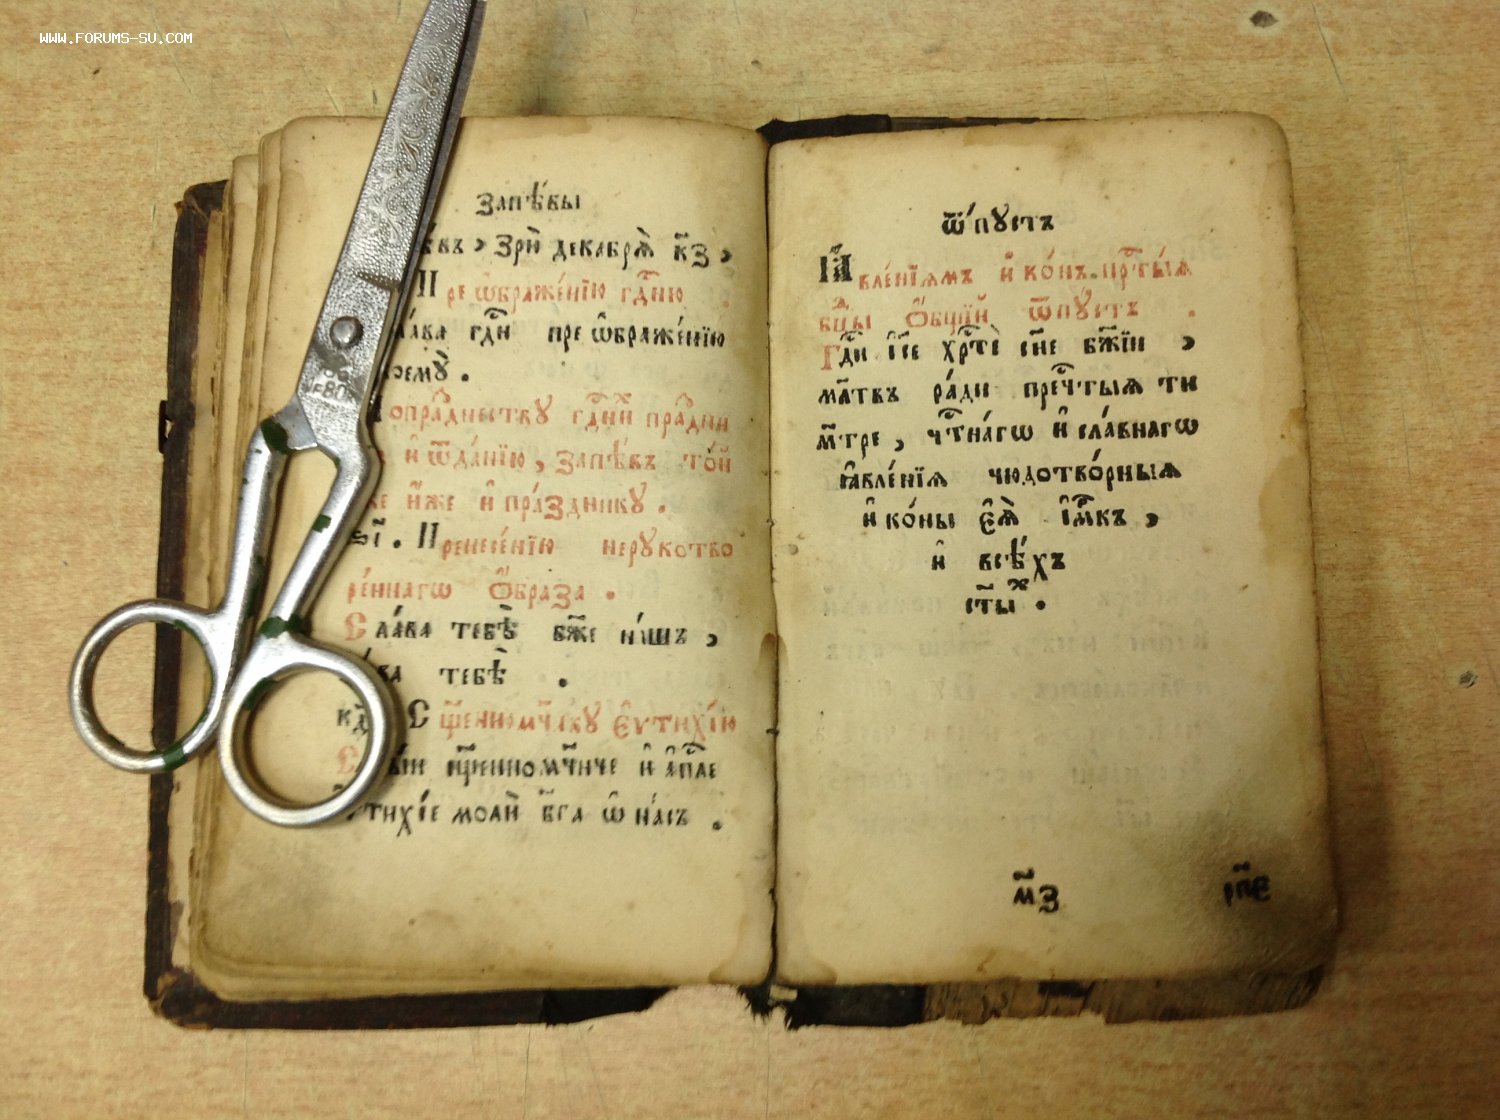 WWW.FORUMS-SU.COM
запѣ́вы
зрѝ декабрѧ̀ к҃з,
Преѡбраже́нїю гдⷭ҇ню
гдⷭ҇и преѡбраже́нїю
моемꙋ̀.
гдⷭ҇нѝ
и҆ ѿда́нїю, запѣ́въ то́й
же и҆́же и҆ пра́здникꙋ.
ѕ҃і. Пренесе́нїю нерꙋкотво
ре́ннагѡ ѻ҆́браза.
Сла́ва тебѣ̀ бж҃е на́шъ,
тебѣ̀ .
к҃д С щ҃енномч҃нкꙋ є҆ѵтихі́ю
щ҃енномч҃нче и҆ а҆пⷭ҇ле
тихі́е молѝ бг҃а ѡ҆ на́съ .
ѿпꙋстъ
Ꙗ҆вле́нїямъ и҆ко́нъ. прⷭ҇ты́ѧ
бц҃ы ѻ҆́бщїй ѿпꙋ́стъ .
Гдⷭ҇и і҆с҃е хрⷭ҇тѐ сн҃е бж҃їи ,
мл҃твъ ра́ди пречⷭ҇тыѧ ти
мт҃ре, чⷭ҇тна́гѡ и҆ сла́внагѡ
ꙗ҆вле́нїѧ чюдотво́рныѧ
и҆ко́ны є҆ѧ̀ и҆м҃къ ,
и҆ всѣ́хъ
ст҃ыⷯ .
м҃з
рп҃є